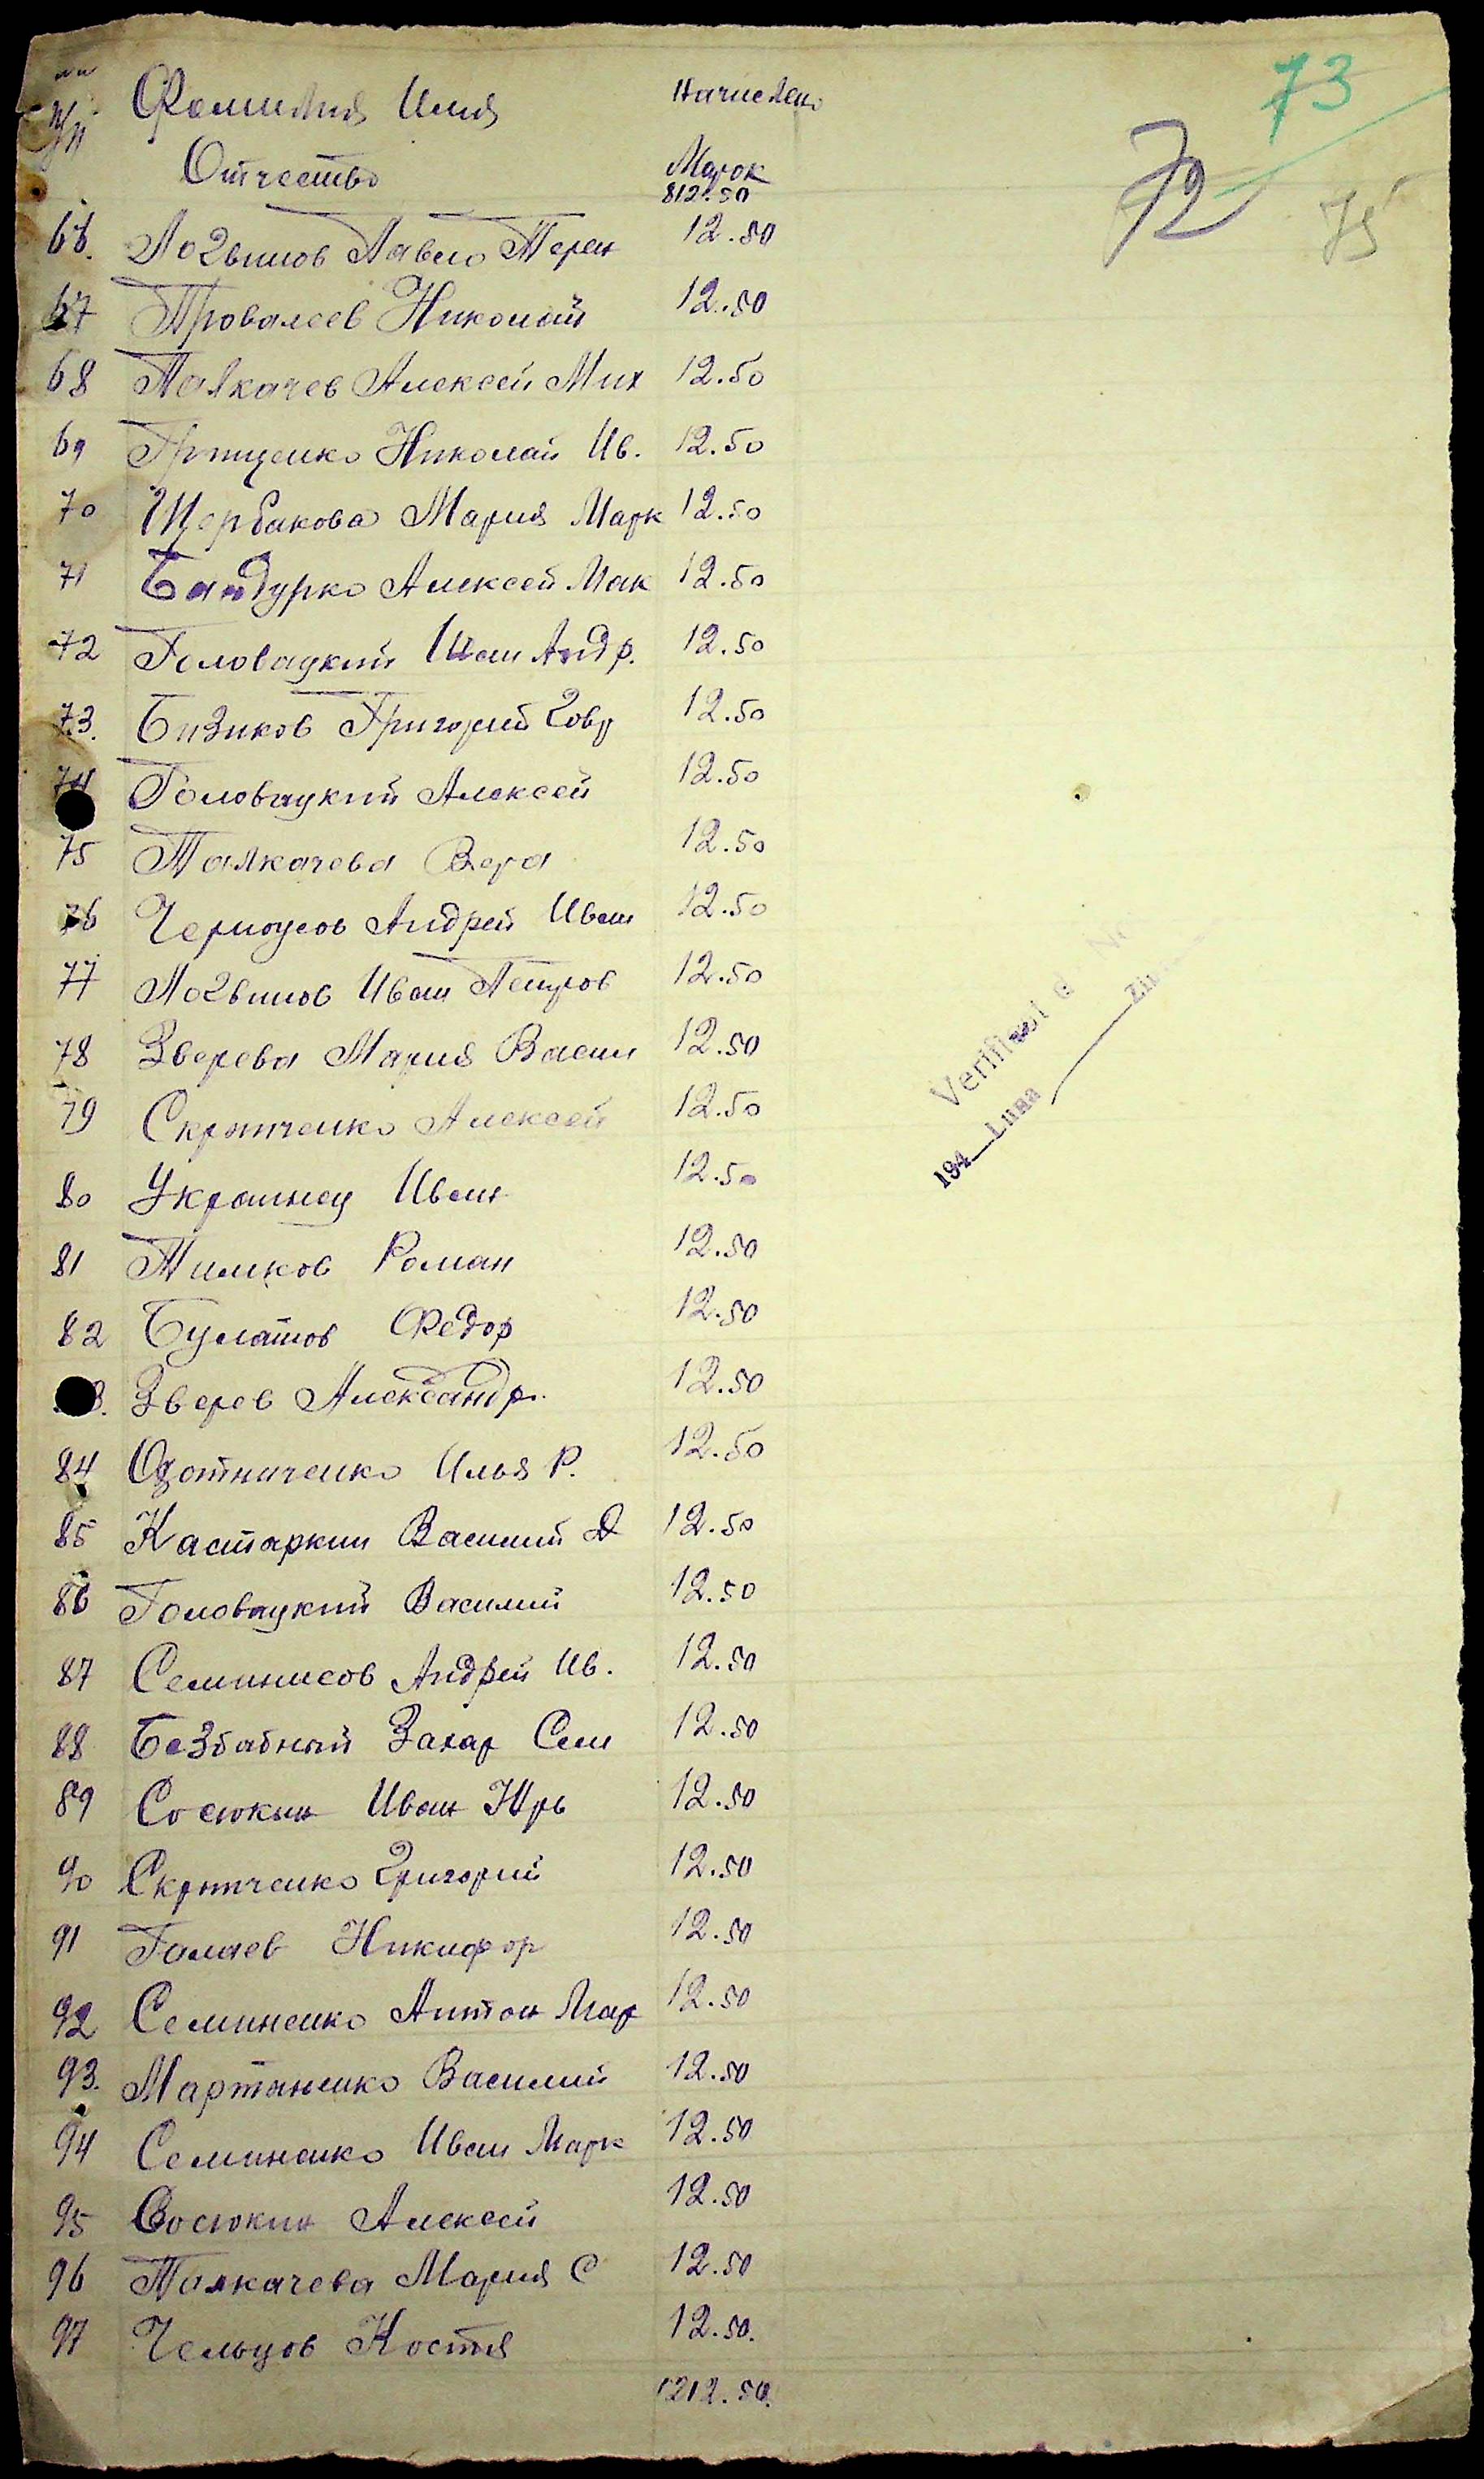 73
72
75
№№ п/п Фамилия Имя Отчество Начислено Марок
812.50
66. Логвинов Павло Терен 12.50
67 Провалеев Николай 12.50
68 Талкачев Алексей Мих 12.50
69 Грищенко Николай Ив. 12.50
70 Щербакова Мария Марк 12.50
71 Бандурко Алексей Мак 12.50
72 Головацкий Иван Андр. 12.50
73. Бизиков Григорий 12.50
74 Головацкий Алексей 12.50
75 Талкачева Вера 12.50
76 Черноусов Андрей Иван 12.50
77 Логвинов Иван Петров 12.50
78 Зверева Мария Васил 12.50
79 Скрипченко Алексей 12.50
80 Украинец Иван 12.50
81 Тимков Роман 12.50
82 Булатов Федор 12.50
3. Зверев Александр. 12.50
84 Илья Р. 12.50
85 Кастаркин Василий Д 12.50
86 Головацкий Василий 12.50
87 Семинисов Андрей Ив. 12.50
88 Безбабный Захар Сем 12.50
89 Сосюкин Иван Юрь 12.50
90 Скрипченко Григорий 12.50
91 Галаев Никифор 12.50
92 Семиненко Антон Мар 12.50
93. Мартыненко Василий 12.50
94 Семиненко Иван Марк 12.50
95 Сосюкин Алексей 12.50
96 Талкачева Мария С 12.50
97 Чельцов Костя 12.50.
1212.50.
Verificat
194_ Luna Ziua